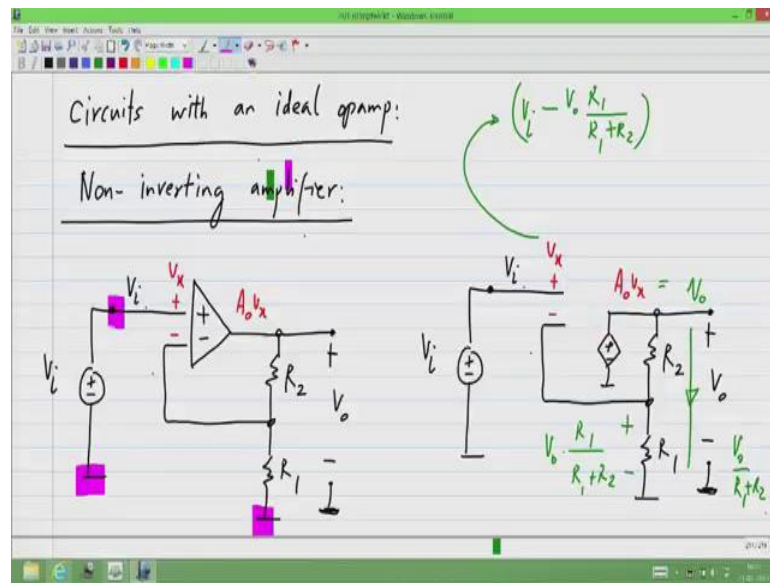 File Edit View Insert Actions Tools Help
Page Width
B I
Circuits with an ideal opamp:
Non-inverting amplifier:
(V_i - V_o R_1/(R_1+R_2))
V_i
V_x
+
-
+
-
A_o v_x
V_i
+
-
R_2
+
V_o
-
R_1
V_i
V_x
+
-
A_o v_x = V_o
V_i
+
-
R_2
+
V_o
-
V_o · R_1/(R_1+R_2)
+
-
R_1
V_o/(R_1+R_2)